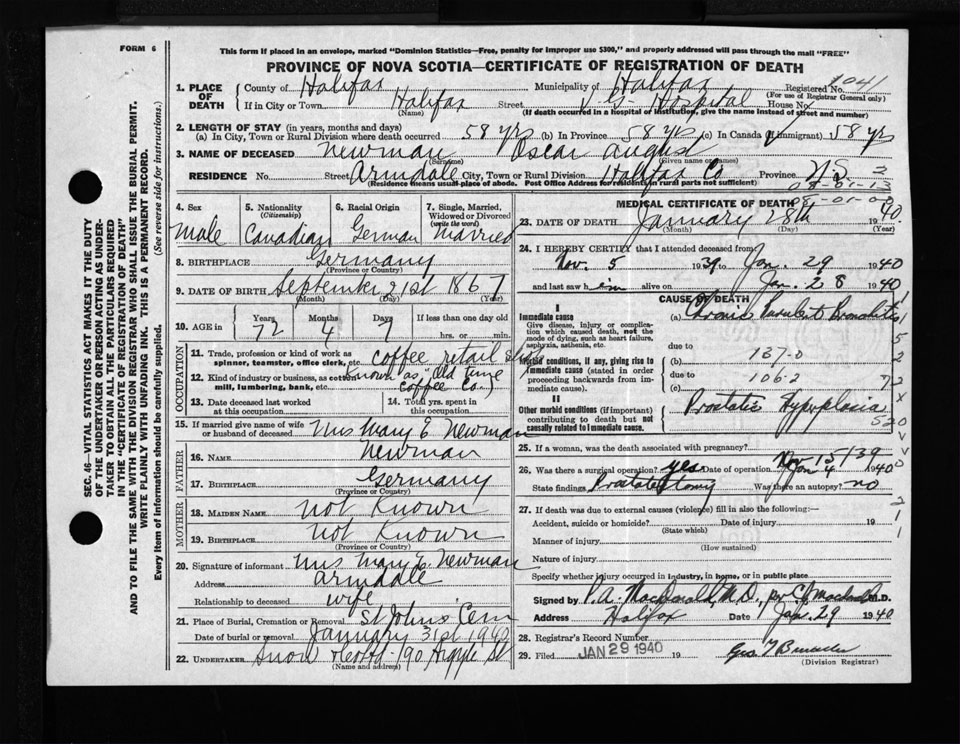 FORM 6
This form if placed in an envelope, marked "Dominion Statistics—Free, penalty for improper use $300," and properly addressed will pass through the mail "FREE"
PROVINCE OF NOVA SCOTIA—CERTIFICATE OF REGISTRATION OF DEATH
1. PLACE OF DEATH
County of Halifax Municipality of Halifax Registered No. 1041
(For use of Registrar General only)
If in City or Town Halifax Street V G Hospital House No.
(Name) (If death occurred in a hospital or institution, give the name instead of street and number)
2. LENGTH OF STAY (in years, months and days)
(a) In City, Town or Rural Division where death occurred 58 yrs (b) In Province 58 yrs (c) In Canada (if immigrant) 58 yrs
3. NAME OF DECEASED Newman Oscar August
(Surname) (Given name or names)
RESIDENCE No. Street Armdale City, Town or Rural Division Halifax Co Province N.S. 2
(Residence means usual place of abode. Post Office Address for residents in rural parts not sufficient)
08-01-13
01-00
4. Sex Male
5. Nationality (Citizenship) Canadian
6. Racial Origin German
7. Single, Married, Widowed or Divorced (write the word) Married
8. BIRTHPLACE Germany
(Province or Country)
9. DATE OF BIRTH September 21st 1867
(Month) (Day) (Year)
10. AGE in Years 72 Months 4 Days 7 If less than one day old
hrs. or min.
OCCUPATION
11. Trade, profession or kind of work as spinner, teamster, office clerk, etc. coffee retail store
12. Kind of industry or business, as cotton mill, lumbering, bank, etc. known as "Old time coffee Co"
13. Date deceased last worked at this occupation
14. Total yrs. spent in this occupation
15. If married give name of wife or husband of deceased Mrs Mary E. Newman
FATHER
16. NAME Newman
17. BIRTHPLACE Germany
(Province or Country)
MOTHER
18. MAIDEN NAME not known
19. BIRTHPLACE Not Known
(Province or Country)
20. Signature of informant Mrs Mary E. Newman
Address Armdale
Relationship to deceased wife
21. Place of Burial, Cremation or Removal St Johns Cem
Date of burial or removal January 31st 1940
22. UNDERTAKER Snow & Co Ltd - 90 Argyle St
(Name and address)
MEDICAL CERTIFICATE OF DEATH
23. DATE OF DEATH January 28th 1940.
(Month) (Day) (Year)
24. I HEREBY CERTIFY that I attended deceased from
Nov. 5 1939 to Jan. 29 1940
and last saw him alive on Jan. 28 1940
CAUSE OF DEATH
I
Immediate cause
Give disease, injury or complication which caused death, not the mode of dying, such as heart failure, asphyxia, asthenia, etc.
(a) Chronic Purulent Bronchitis
due to
Morbid conditions, if any, giving rise to immediate cause (stated in order proceeding backwards from immediate cause).
(b) 137-0
due to 106-2
(c)
II
Other morbid conditions (if important) contributing to death but not causally related to immediate cause.
Prostatic Hypoplasia
25. If a woman, was the death associated with pregnancy?
Nov 15/39
26. Was there a surgical operation? yes Date of operation Jan 4 1940
State findings Prostatectomy Was there an autopsy? no
27. If death was due to external causes (violence) fill in also the following:—
Accident, suicide or homicide? Date of injury 19
(State which)
Manner of injury
(How sustained)
Nature of injury
Specify whether injury occurred in industry, in home, or in public place
Signed by P.A. Macdonald, M.D., per M.D.
Address Halifax Date Jan. 29 1940
28. Registrar's Record Number
29. Filed JAN 29 1940 19
(Division Registrar)
SEC. 46—VITAL STATISTICS ACT MAKES IT THE DUTY
OF THE UNDERTAKER OR PERSON ACTING AS UNDER-
TAKER TO OBTAIN ALL THE PARTICULARS REQUIRED
IN THE "CERTIFICATE OF REGISTRATION OF DEATH"
AND TO FILE THE SAME WITH THE DIVISION REGISTRAR WHO SHALL ISSUE THE BURIAL PERMIT.
WRITE PLAINLY WITH UNFADING INK. THIS IS A PERMANENT RECORD.
Every item of information should be carefully supplied. (See reverse side for instructions.)